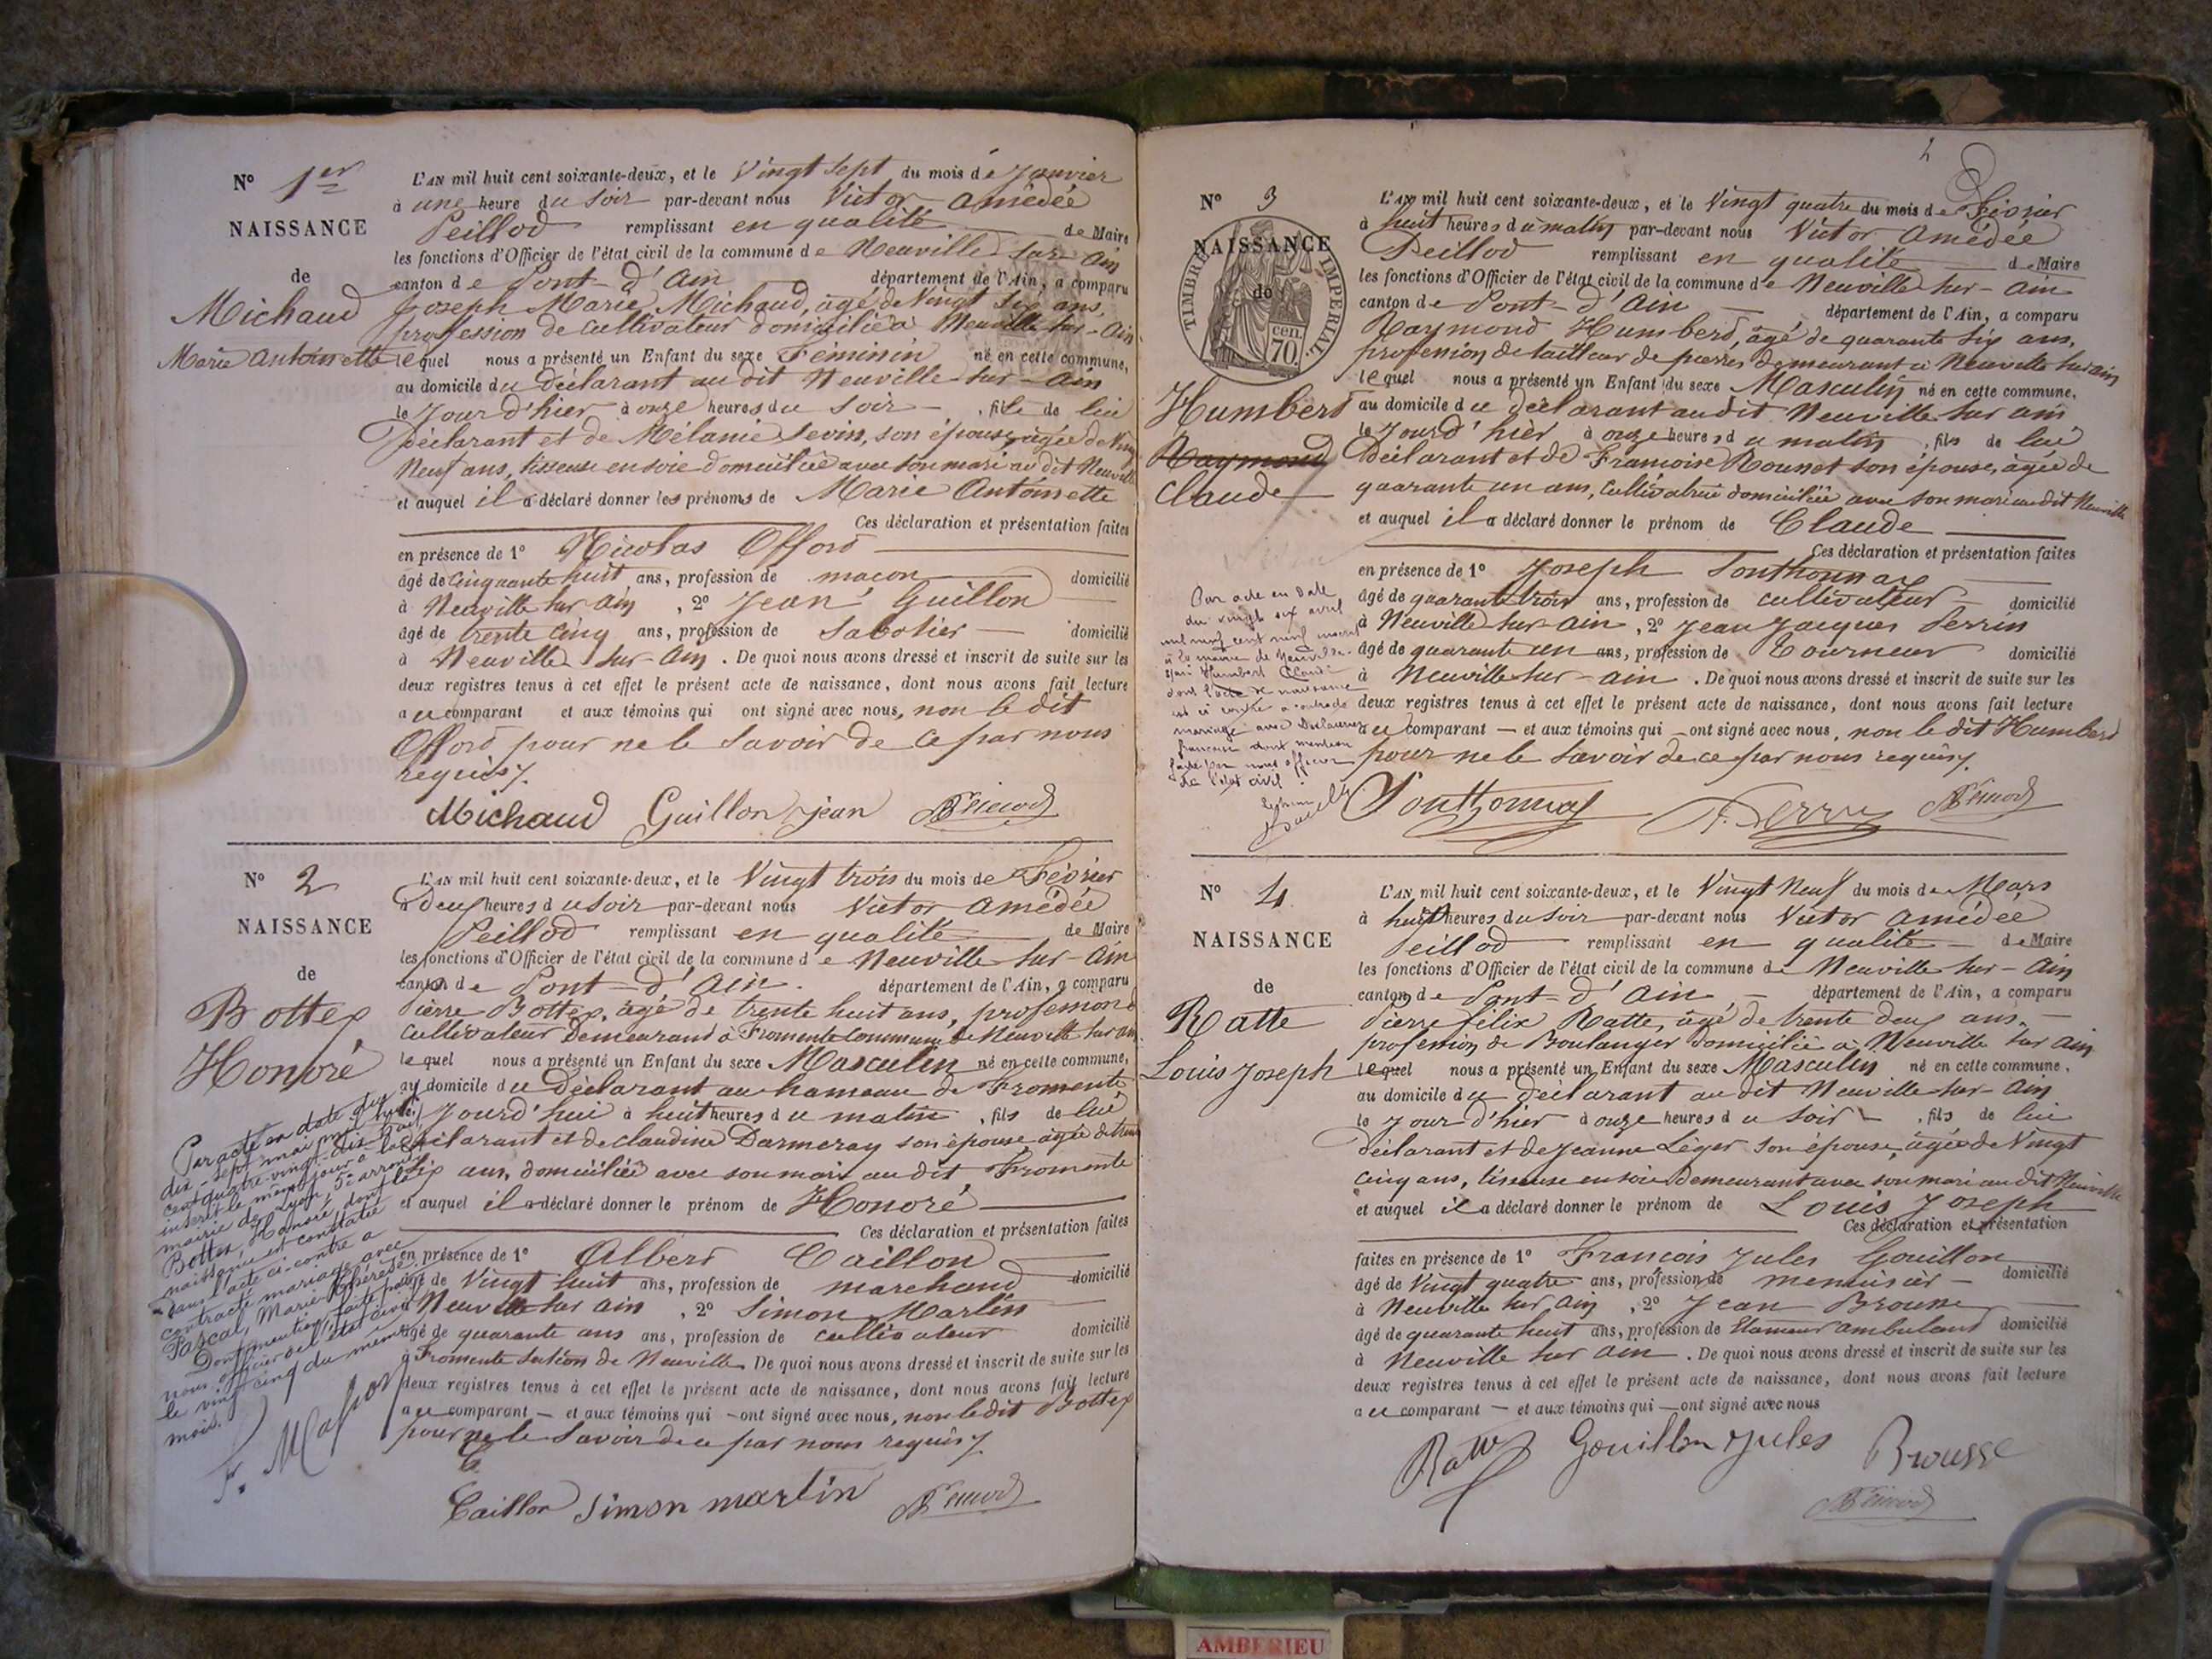 N° 1er
NAISSANCE
de
Michaud
Marie Antoinette
L'AN mil huit cent soixante-deux, et le Vingt sept du mois de Janvier
à une heure du soir par-devant nous Victor Amédée
Peillod remplissant en qualité de Maire
les fonctions d'Officier de l'état civil de la commune de Neuville sur Ain
canton de Pont-d'Ain département de l'Ain, a comparu
Joseph Marie Michaud, âgé de Vingt six ans,
profession de cultivateur domicilié à Neuville sur-Ain
lequel nous a présenté un Enfant du sexe Féminin né en cette commune,
au domicile du déclarant au dit Neuville sur-Ain
le Jour d'hier à onze heures du soir , fille de lui
Déclarant et de Mélanie Sevin, son épouse, agée de Vingt
Neuf ans, tisseuse en soie domiciliée avec son mari au dit Neuville
et auquel il a déclaré donner les prénoms de Marie Antoinette
Ces déclaration et présentation faites
en présence de 1° Nicolas Offord
âgé de cinquante huit ans, profession de maçon domicilié
à Neuville sur Ain , 2° Jean Guillon
âgé de trente cinq ans, profession de Sabotier domicilié
à Neuville sur-Ain . De quoi nous avons dressé et inscrit de suite sur les
deux registres tenus à cet effet le présent acte de naissance, dont nous avons fait lecture
au comparant et aux témoins qui ont signé avec nous, non le dit
Offord pour ne le savoir de ce par nous
requis.
Michaud Guillon Jean
N° 2
NAISSANCE
de
Bottex
Honoré
Par acte en date du
dix-sept mai mil huit
cent quatre-vingt-dix-
inscrit le même jour à la
mairie de Lyon, 5e arrondt
Bottex, Honoré, dont la
naissance est constatée
dans l'acte ci-contre a
contracté mariage avec
Pascal, Marie Thérèse.
Dont mention faite par
nous officier de l'état civil
le vingt cinq du même
mois.
L'AN mil huit cent soixante-deux, et le Vingt trois du mois de Février
à deux heures du soir par-devant nous Victor Amédée
Peillod remplissant en qualité de Maire
les fonctions d'Officier de l'état civil de la commune de Neuville sur-Ain
canton de Pont-d'Ain. département de l'Ain, a comparu
Pierre Bottex, âgé de trente huit ans, profession de
cultivateur Demeurant à Fromente commune de Neuville sur ain
lequel nous a présenté un Enfant du sexe Masculin né en cette commune,
au domicile du Déclarant au hameau de Fromente
Jourd'hui à huit heures du matin , fils de lui
Déclarant et de claudine Darmeray son épouse agée de trente
Six ans, domiciliée avec son mari au dit Fromente
et auquel il a déclaré donner le prénom de Honoré
Ces déclaration et présentation faites
en présence de 1° Albert Caillon
âgé de Vingt huit ans, profession de marchand domicilié
Neuville sur ain , 2° Simon Martin
âgé de quarante ans ans, profession de cultivateur domicilié
à Fromente section de Neuville De quoi nous avons dressé et inscrit de suite sur les
deux registres tenus à cet effet le présent acte de naissance, dont nous avons fait lecture
au comparant — et aux témoins qui — ont signé avec nous, non le dit Bottex
pour ne le savoir de ce par nous requis.
Caillon Simon martin
N° 3
NAISSANCE
de
TIMBRE IMPERIAL
70 cen.
Humbert
Raymond
Claude
Par acte en date
du vingt six avril
mil neuf cent neuf inscrit
à la mairie de Neuville-
s/ain Humbert Claude
dont l'acte de naissance
est ci contre a contracté
mariage avec
française dont mention
faite par nous officier
de l'état civil
L'AN mil huit cent soixante-deux, et le Vingt quatre du mois de Février
à huit heures du matin par-devant nous Victor Amédée
Peillod remplissant en qualité de Maire
les fonctions d'Officier de l'état civil de la commune de Neuville sur-ain
canton de Pont-d'Ain département de l'Ain, a comparu
Raymond Humberd, âgé de quarante six ans,
profession de tailleur de pierres demeurant à Neuville sur ain
lequel nous a présenté un Enfant du sexe Masculin né en cette commune,
au domicile du déclarant au dit Neuville sur ain
le Jourd'hier à onze heures du matin , fils de lui
Déclarant et de Françoise Rousset son épouse, agée de
quarante un ans, cultivatrice domiciliée avec son mari au dit Neuville
et auquel il a déclaré donner le prénom de Claude
Ces déclaration et présentation faites
en présence de 1° Joseph Sonthonnax
âgé de quarante trois ans, profession de cultivateur domicilié
à Neuville sur-ain , 2° Jean Jacques Perrin
âgé de quarante un ans, profession de Tourneur domicilié
à Neuville sur-ain . De quoi nous avons dressé et inscrit de suite sur les
deux registres tenus à cet effet le présent acte de naissance, dont nous avons fait lecture
au comparant — et aux témoins qui — ont signé avec nous, non le dit Humberd
pour ne le savoir de ce par nous requis.
Sonthonnax
N° 4
NAISSANCE
de
Ratte
Louis Joseph
L'AN mil huit cent soixante-deux, et le Vingt Neuf du mois de Mars
à huit heures du soir par-devant nous Victor Amédée
Peillod remplissant en qualité de Maire
les fonctions d'Officier de l'état civil de la commune de Neuville sur-Ain
canton de Pont-d'Ain département de l'Ain, a comparu
Pierre félix Ratte, âgé de trente deux ans,
profession de Boulanger domicilié à Neuville sur ain
lequel nous a présenté un Enfant du sexe Masculin né en cette commune,
au domicile du déclarant au dit Neuville sur-Ain
le Jour d'hier à onze heures du soir , fils de lui
Déclarant et de Jeanne Léger son épouse, âgée de Vingt
cinq ans, tisseuse en soie demeurant avec son mari au dit Neuville
et auquel il a déclaré donner le prénom de Louis Joseph
Ces déclaration et présentation
faites en présence de 1° François Jules Gouillon
âgé de Vingt quatre ans, profession de menuisier domicilié
à Neuville sur Ain , 2° Jean Brousse
âgé de quarante huit ans, profession de Etameur ambulant domicilié
à Neuville sur ain . De quoi nous avons dressé et inscrit de suite sur les
deux registres tenus à cet effet le présent acte de naissance, dont nous avons fait lecture
au comparant — et aux témoins qui — ont signé avec nous
Gouillon Jules Brousse
AMBERIEU